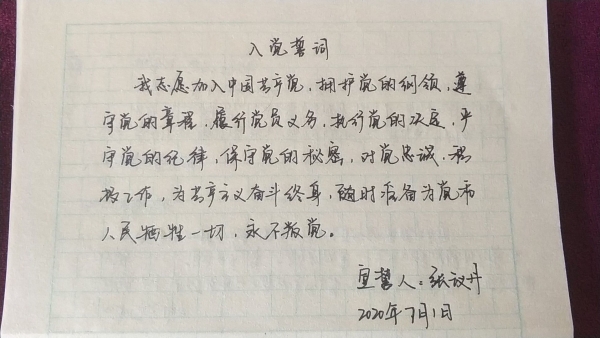 入党誓词
我志愿加入中国共产党，拥护党的纲领，遵
守党的章程，履行党员义务，执行党的决定，严
守党的纪律，保守党的秘密，对党忠诚，积
极工作，为共产主义奋斗终身，随时准备为党和
人民牺牲一切，永不叛党。
宣誓人：张议丹
2020年7月1日